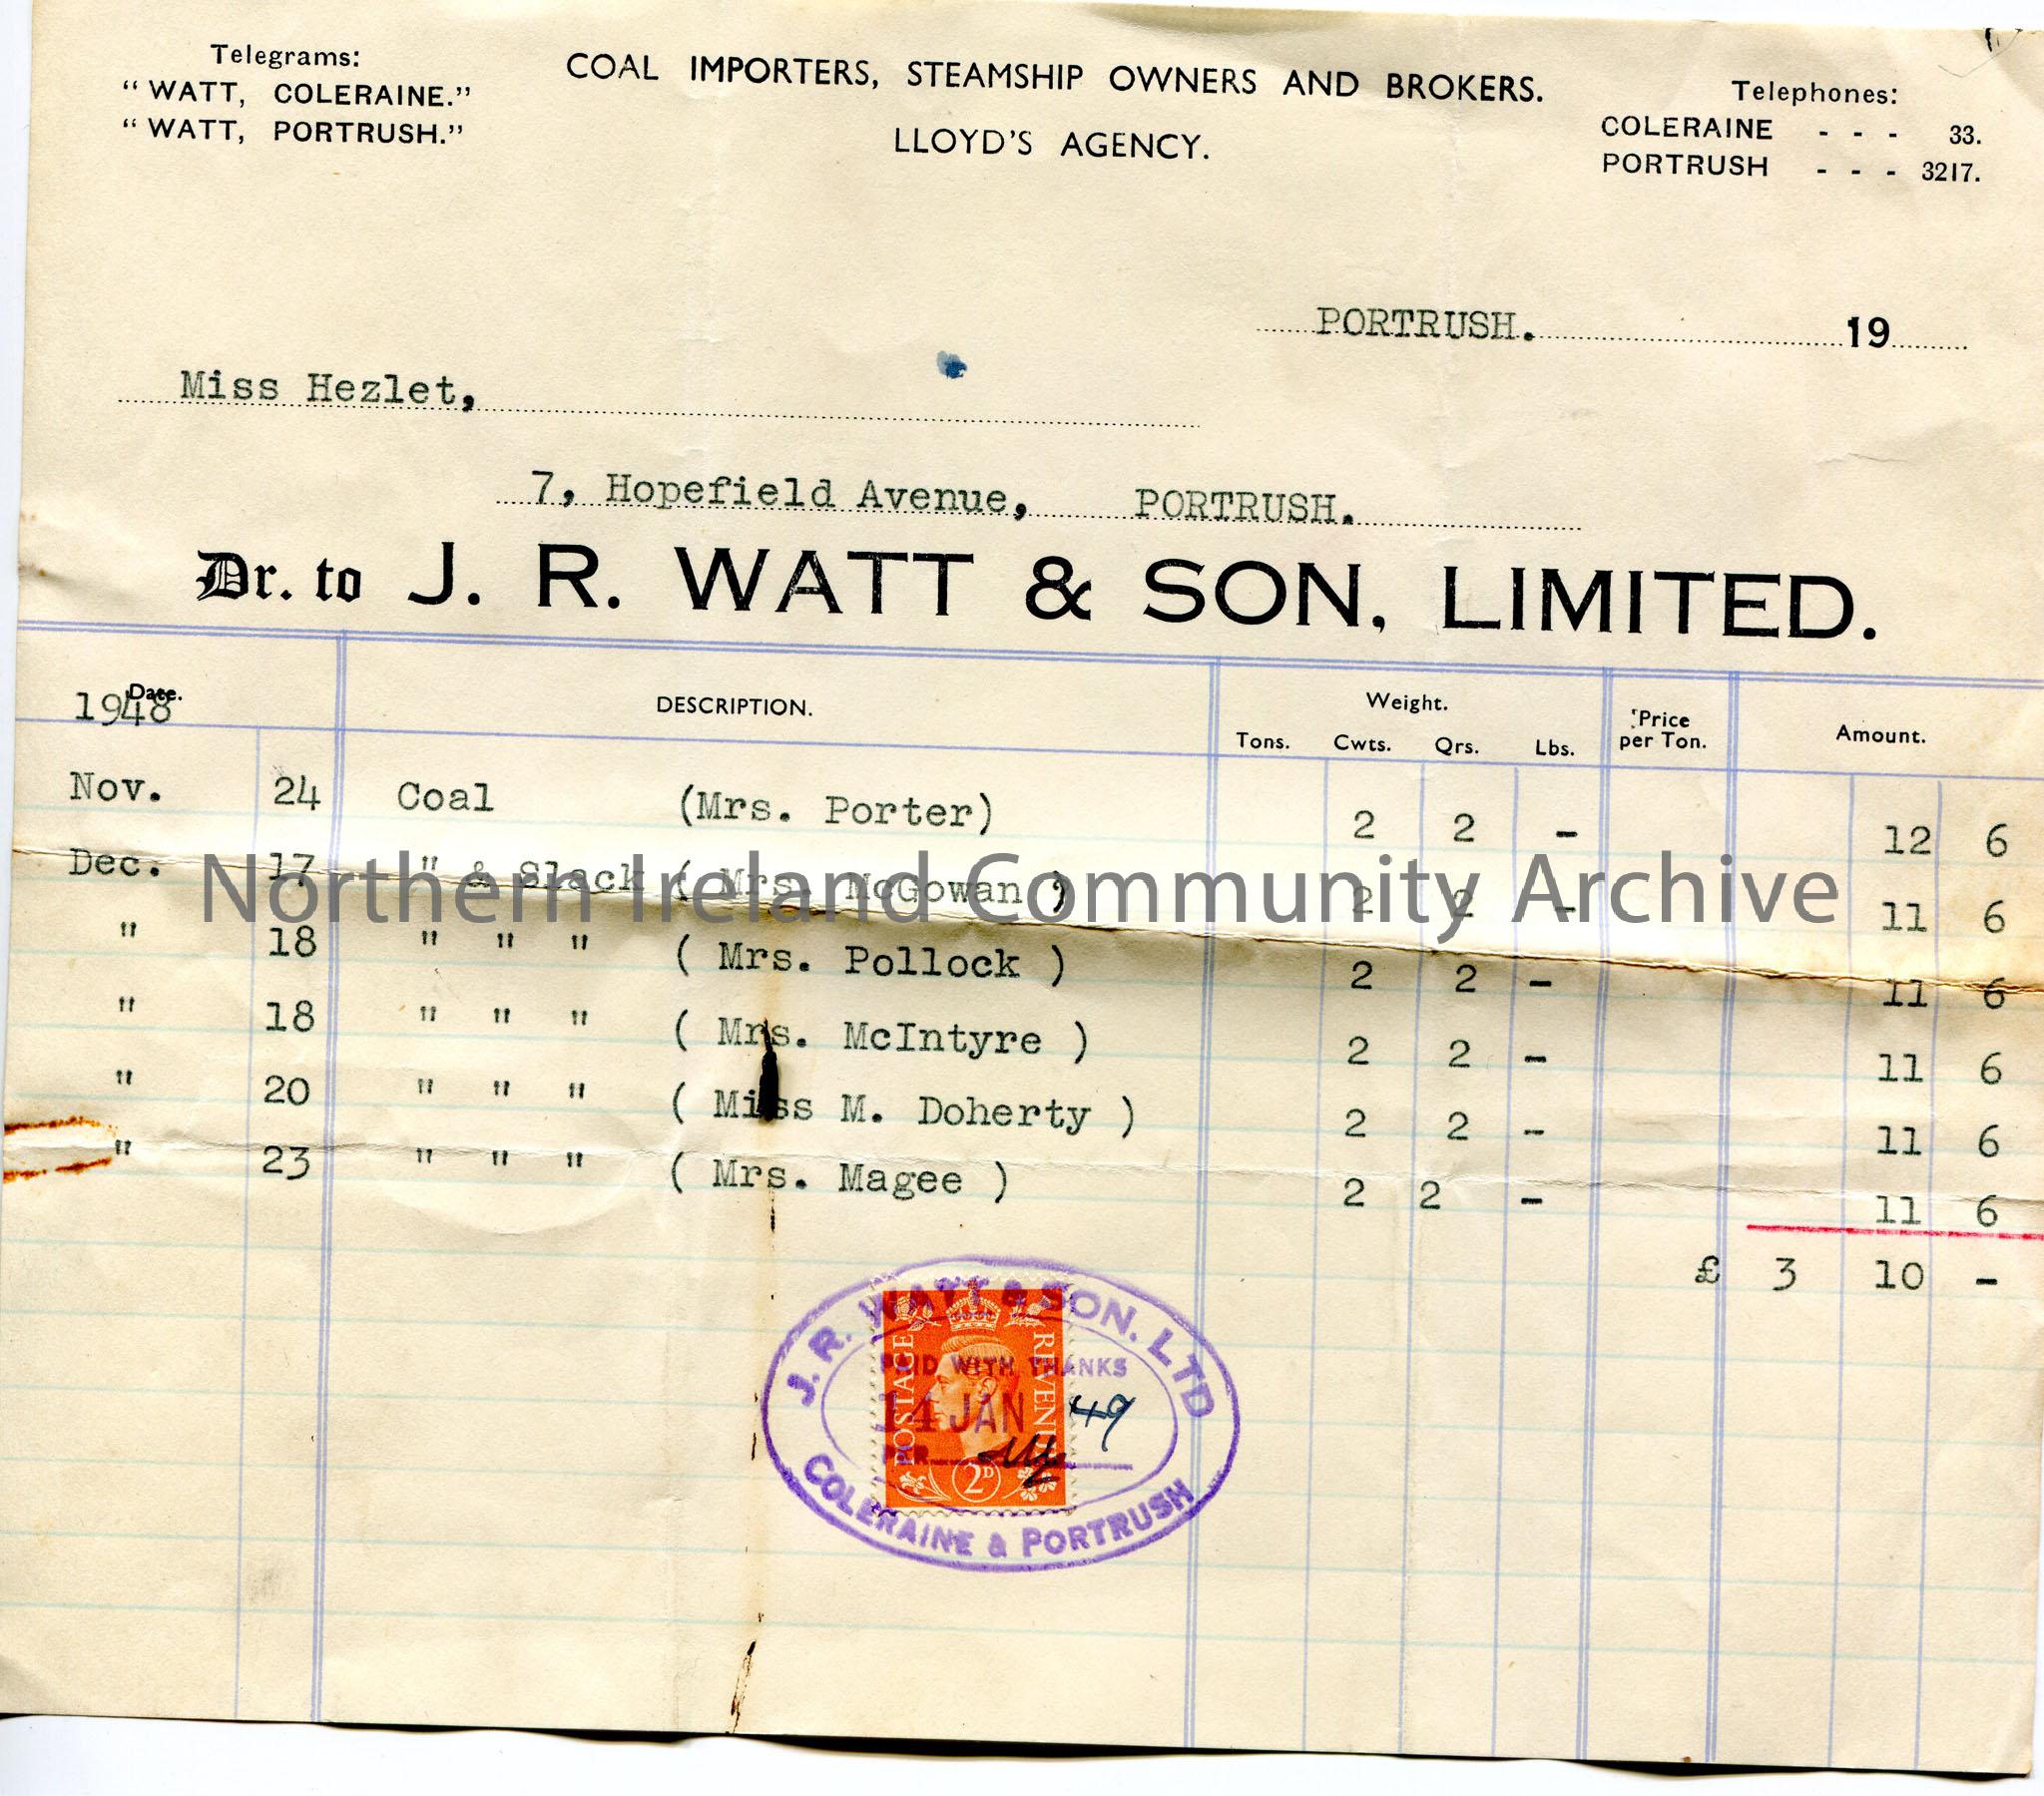 Telegrams:
"WATT, COLERAINE."
"WATT, PORTRUSH."
COAL IMPORTERS, STEAMSHIP OWNERS AND BROKERS.
LLOYD'S AGENCY.
Telephones:
COLERAINE - - - 33.
PORTRUSH - - - 3217.
PORTRUSH. 19
Miss Hezlet,
7, Hopefield Avenue, PORTRUSH.
Dr. to J. R. WATT & SON, LIMITED.
Date. 1948 DESCRIPTION. Weight. Price per Ton. Amount.
Tons. Cwts. Qrs. Lbs.
Nov. 24 Coal (Mrs. Porter) 2 2 - 12 6
Dec. 17 " & Slack ( Mrs. McGowan ) 2 2 - 11 6
" 18 " " " ( Mrs. Pollock ) 2 2 - 11 6
" 18 " " " ( Mrs. McIntyre ) 2 2 - 11 6
" 20 " " " ( Miss M. Doherty ) 2 2 - 11 6
" 23 " " " ( Mrs. Magee ) 2 2 - 11 6
£ 3 10 -
Northern Ireland Community Archive
J. R. WATT & SON. LTD
PAID WITH THANKS
14 JAN 49
PER
COLERAINE & PORTRUSH
POSTAGE
REVENUE
2D